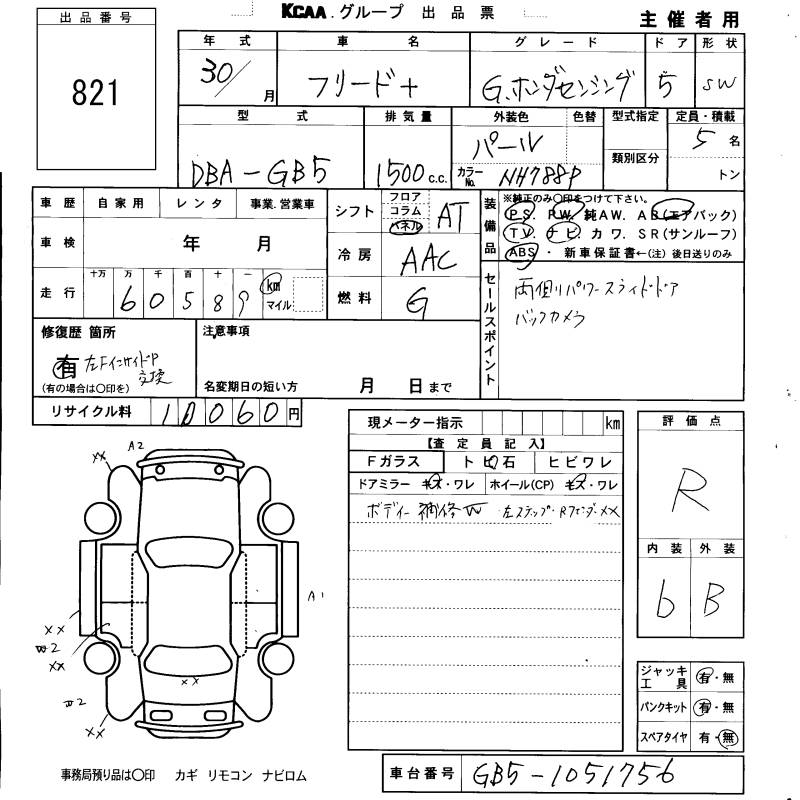 出品番号
821
KCAA.グループ 出品票
主催者用
年式 車名 グレード ドア 形状
30/月 フリード+ G.ホンダセンシング 5 SW
型式 排気量 外装色 色替 型式指定 定員・積載
DBA-GB5 1500c.c. パール 5名
カラーNo. NH788P 類別区分 トン
車歴 自家用 レンタ 事業.営業車
車検 年 月
走行 十万 万 千 百 十 一
60589 km マイル
シフト フロア コラム パネル AT
冷房 AAC
燃料 G
装備品
※純正のみ〇印をつけて下さい。
PS. PW. 純AW. AB(エアバック)
TV. ナビ. カワ. SR(サンルーフ)
ABS ・ 新車保証書←(注)後日送りのみ
セールスポイント
両側パワースライドドア
バックカメラ
修復歴 箇所
有 左FインサイドP
交換
(有の場合は〇印を)
注意事項
名変期日の短い方 月 日まで
リサイクル料 10060円
現メーター指示 km
【査定員記入】
Fガラス トビ石 ヒビワレ
ドアミラー キズ・ワレ ホイール(CP) キズ・ワレ
ボディー 補修W 左ステップ・RフェンダーXX
評価点
R
内装 外装
6 B
A2
XX
A1
XX
W2
XX
XX
W2
XX
ジャッキ工具 有・無
パンクキット 有・無
スペアタイヤ 有・無
事務局預り品は〇印 カギ リモコン ナビロム
車台番号 GB5-1051756